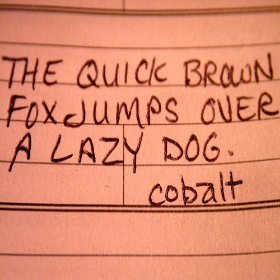 THE QUICK BROWN
FOX JUMPS OVER
A LAZY DOG.
cobalt